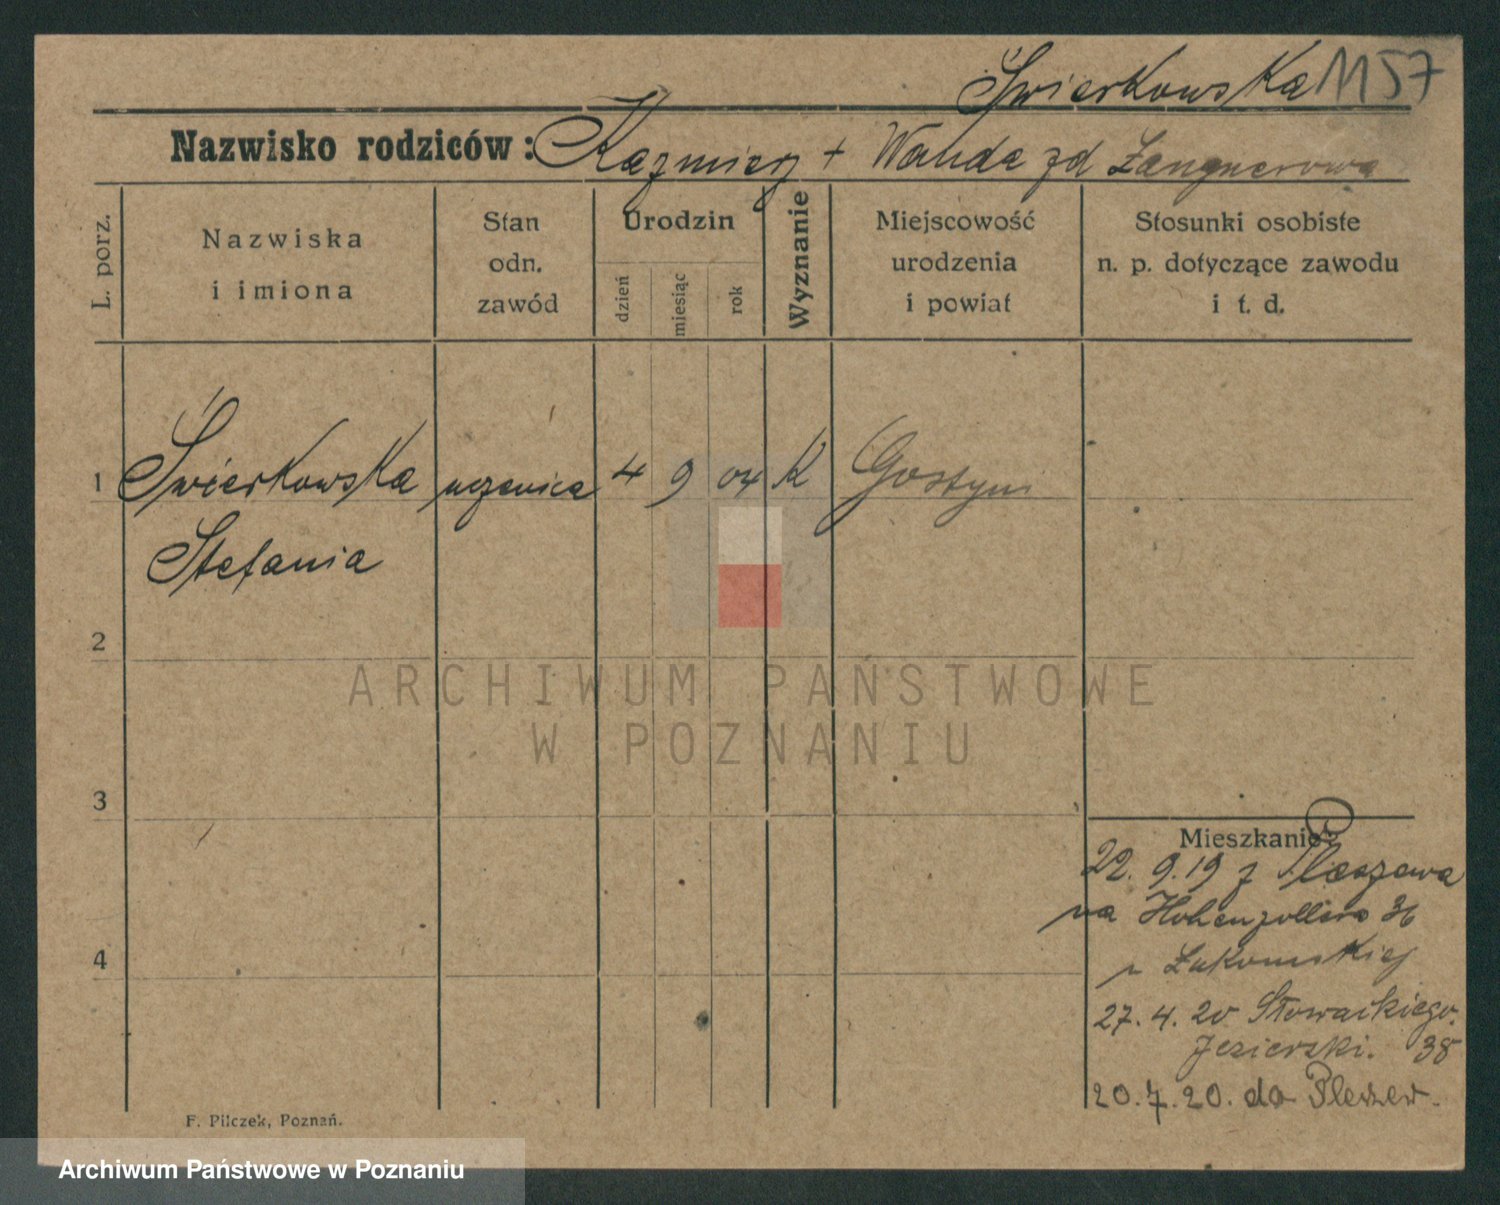 Świerkowska 1157
Nazwisko rodziców: Kazmierz + Wanda zd Langnerowa
L. porz.
Nazwiska
i imiona
Stan
odn.
zawód
Urodzin
dzień
miesiąc
rok
Wyznanie
Miejscowość
urodzenia
i powiat
Stosunki osobiste
n. p. dotyczące zawodu
i t. d.
1 Świerkowska uczenica 4 9 04 K Gostyn
Stefania
2
3
4
Mieszkanie
22. 9. 19 z Pleszewa
na Hohenzollern 36
Łukomskiej
27. 4. 20 Słowackiego
Jezierski. 38
20. 7. 20. do Pleszew.
F. Pilczek, Poznań.
ARCHIWUM PAŃSTWOWE
W POZNANIU
Archiwum Państwowe w Poznaniu